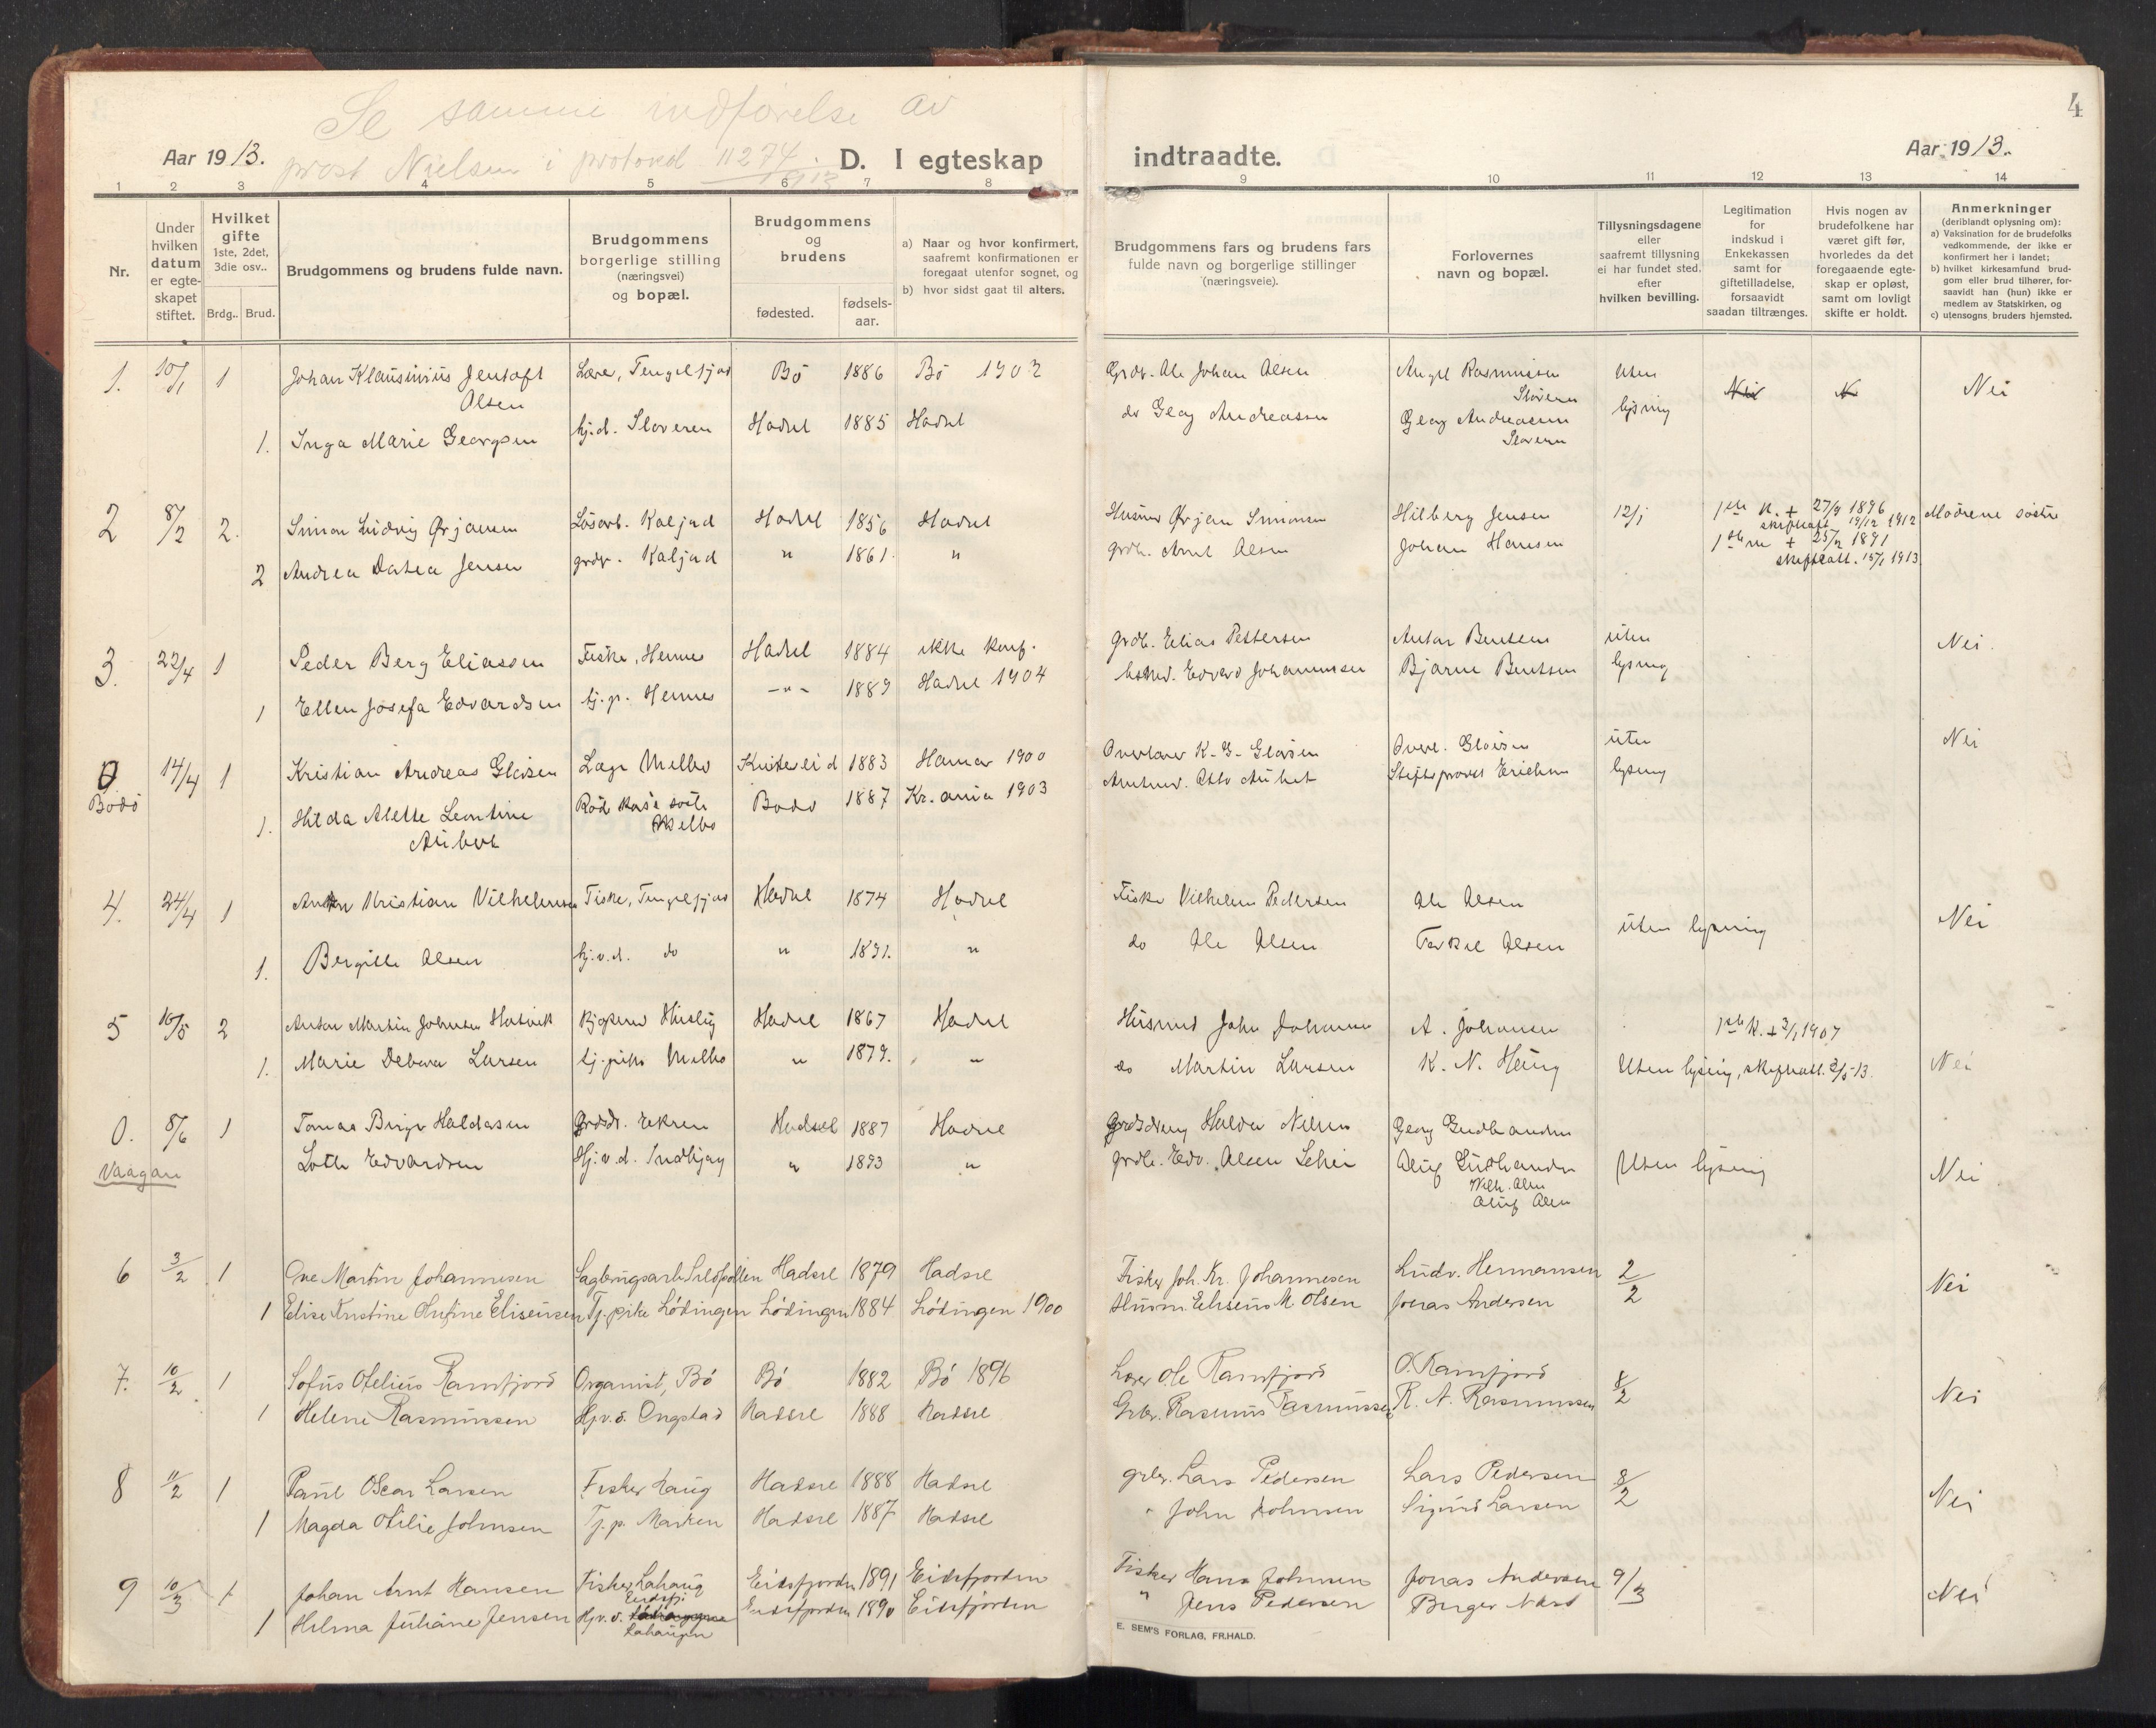 Se samme indførelse av
prost Nielsen i protokol 11274 1913
4
Aar 1913. D. I egteskap indtraadte. Aar 1913.
1 2 3 4 5 6 7 8 9 10 11 12 13 14
Nr.
Under hvilken datum er egteskapet stiftet.
Hvilket gifte 1ste, 2det, 3die osv..
Brdg.. Brud.
Brudgommens og brudens fulde navn.
Brudgommens borgerlige stilling (næringsvei) og bopæl.
Brudgommens og brudens
fødested. fødsels-aar.
a) Naar og hvor konfirmert, saafremt konfirmationen er foregaat utenfor sognet, og
b) hvor sidst gaat til alters.
Brudgommens fars og brudens fars fulde navn og borgerlige stillinger (næringsveie).
Forlovernes navn og bopæl.
Tillysningsdagene eller saafremt tillysning ei har fundet sted. efter hvilken bevilling.
Legitimation for indskud i Enkekassen samt for giftetilladelse, forsaavidt saadan tiltrænges.
Hvis nogen av brudefolkene har været gift før, hvorledes da det foregaaende egteskap er opløst, samt om lovligt skifte er holdt.
Anmerkninger (deriblandt oplysning om):
a) Vaksination for de brudefolks vedkommende, der ikke er konfirmert her i landet;
b) hvilket kirkesamfund brudgom eller brud tilhører, forsaavidt han (hun) ikke er medlem av Statskirken, og
c) utensogns bruders hjemsted.
1. 10/1 1 Johan Klausinius Jentoft Olsen Bø 1886 Bø 1902 Grdr. Ole Johan Olsen Angel Rasmussen Sloveren Uten lysning Nei N Nei
1. Inga Marie Georgsen hj.d. Sloveren Hadsel 1885 Hadsel do Georg Andreassen Georg Andreassen Sloveren
2 8/2 2. Simon Ludvig Ørjansen Løsarb. Kaljord Hadsel 1856 Hadsel Husmd Ørjan Simonsen Hilberg Jensen 12/1 1ste K. + 27/9 1896 skifteatt. 19/12 1912 Mødrene søstre
2 Andrea Datea Jensen grdr. Kaljord " 1861 " grdr. Arnt Olsen Johan Hansen 1ste m + 25/2 1891 skifteatt. 15/1 1913
3. 22/4 1 Peder Berg Eliassen Fisker, Hennes Hadsel 1884 ikke konf. grdb. Elias Pettersen Anton Bentsen uten lysning Nei.
1 Ellen Josefa Edvardsen tj.p. Hennes -"- 1889 Hadsel 1904 Edvard Johannessen Bjarne Bentsen
0 Bodø 14/4 1 Kristian Andreas Gløersen Læge Melbo Kviteseid 1883 Hamar 1900 Overlærer K. G. Gløersen Overl. Gløersen uten lysning Nei
1. Hilda Alette Leontine Aubert Rød Kors søster Melbo Bodø 1887 Kr.ania 1903 Amtmd. Otto Aubert Stiftsprovst Erichsen
4. 24/4 1 Kristian Vilhelmsen Fisker, Hadsel 1874 Hadsel Fisker Vilhelm Pedersen Ole Olsen uten lysning Nei
1. Bergitte Olsen hj.v.d. do " 1891. " do Ole Olsen Torkel Olsen
5 16/5 2 Anton Martin Johnsen Hadsel 1867 Hadsel Husmd John Johansen A. Johansen 1ste K. + 3/1 1907
1. Marie Debora Larsen tj.pike Melbo " 1879. " do Martin Larsen K. N. Haug Uten lysning, skifteatt. 2/5 13. Nei
0. Vaagan 8/6 1 Tomas Birger Haldorsen Hadsel 1887 Hadsel Haldor Nilsen Georg Gudbrandsen
Lotte Edvardsen Hj.v.d. Indbjerg " 1893 " grdb. Edv. Olsen Uten lysning Nei
Wilh. Olsen
Oluf Olsen
6 3/2 1 Ove Martin Johannesen Sagbrugsarb. Sildpollen Hadsel 1879 Hadsel Fisker Joh. Kr. Johannesen Ludv. Hermansen 2/2 Nei
1 Elise Kristine Olufine Eliseussen Tj.pike Lødingen Lødingen 1884 Lødingen 1900 Husm. Eliseus M. Olsen Jonas Andersen
7. 10/2 1 Sofus Otelius Ramfjord Organist, Bø Bø 1882 Bø 1896 Lærer Ole Ramfjord O. Ramfjord 8/2 Nei
1 Helene Rasmussen Hj.v.d. Ongstad Hadsel 1888 Hadsel Grbr. Rasmus Rasmussen R. A. Rasmussen
8 11/2 1 Paul Oscar Larsen Fisker Haug Hadsel 1888 Hadsel grbr. Lars Pedersen Lars Pedersen 8/2 Nei
1 Magda Otilie Johnsen Tj.p. Marken Hadsel 1887 Hadsel " John Johnsen Sigurd Larsen
9 10/3 1 Johan Arnt Hansen Fisker Lahaug Eidsfj. Eidsfjorden 1891 Eidsfjorden Fisker Hans Johnsen Jonas Andersen 9/3 Nei
1 Hilma Juliane Jensen Hj.v.d. Lahaugen Eidsfjorden 1890 Eidsfjorden " Jens Pedersen Birger Næss
E. SEM'S FORLAG, FR.HALD.